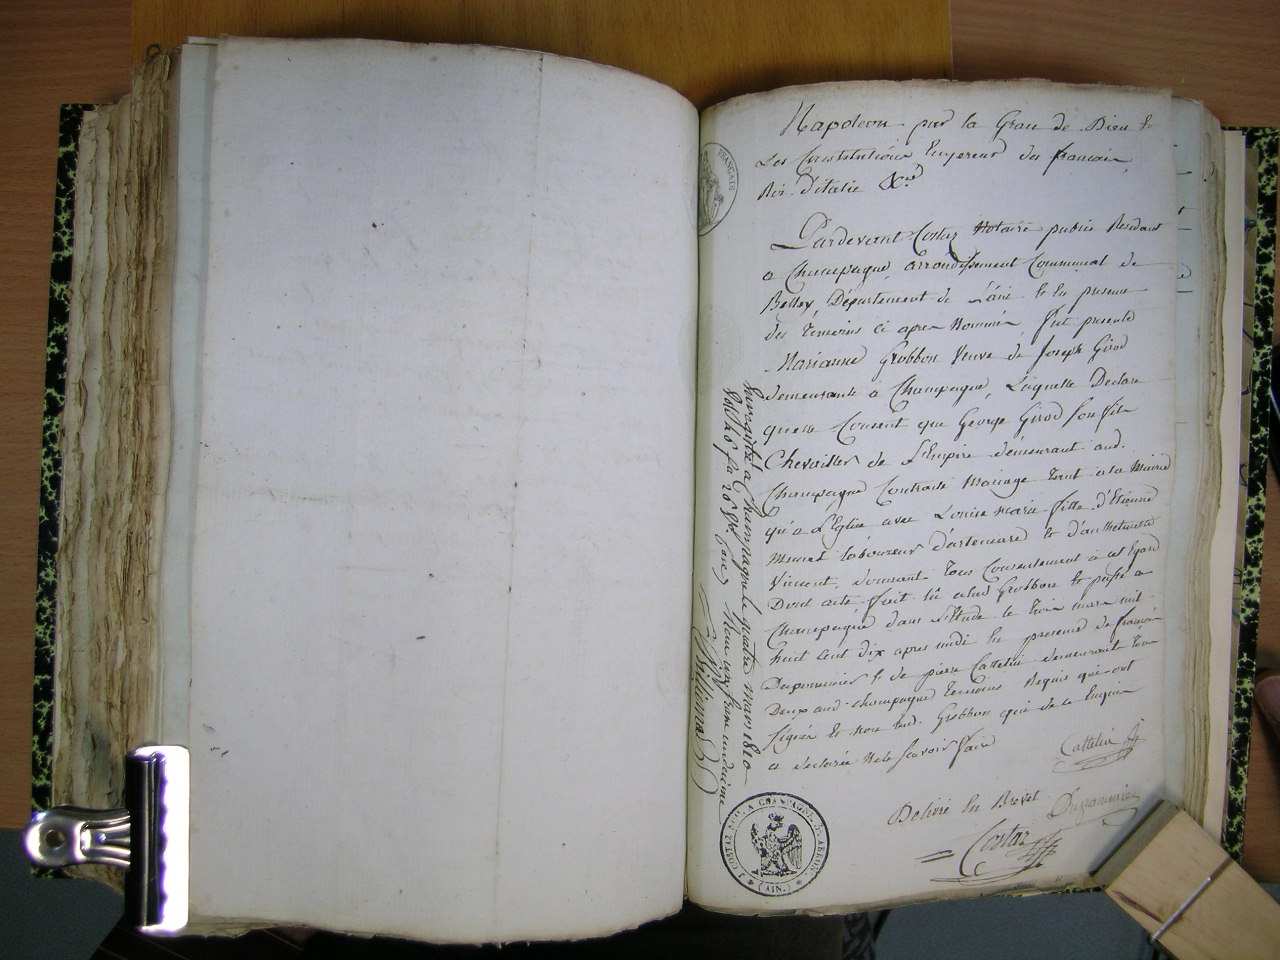 Napoleon par la Grace de Dieu &
Les Constitutions Empereur des francais
Roi d'italie &ca
Pardevant Costaz Notaire public Residant
a Champagne, arrondissement Communal de
Belley, Département de L'ain & En presence
des temoins ci apres Nommés, fut presente
Marianne Grobbon Veuve de Joseph Girod
demeurante à Champagne, Laquelle Declare
qu'elle Consent que George Girod son fils
Chevallier de L'Empire demeurant aud.
Champagne Contracte Mariage tant a la Mairie
qu'a L'Eglise avec Louise marie fille d'Etienne
laboureur d'artemare & d'anthelmette
Vincent, donnant tous Consentement à cet Egard
Dont acte, fait lû a lad Grobbon & passé a
Champagne dans L'Etude le trois mars mil
huit cent dix apres midi En presence de françois
Dupommier & de pierre Cattelin demeurant tous
Deux aud. champagne temoins Requis qui ont
signés & non lad. Grobbon qui de ce Enquise
a declarée ne le savoir faire
Cattelin
Delivré En Brevet Dupommier
Costaz
Enregistré a Champagne le quatre mars 1810
Reçu un franc un decime
FRANÇAIS
J. COSTAZ NOT. A CHAMPAGNE
(AIN.)